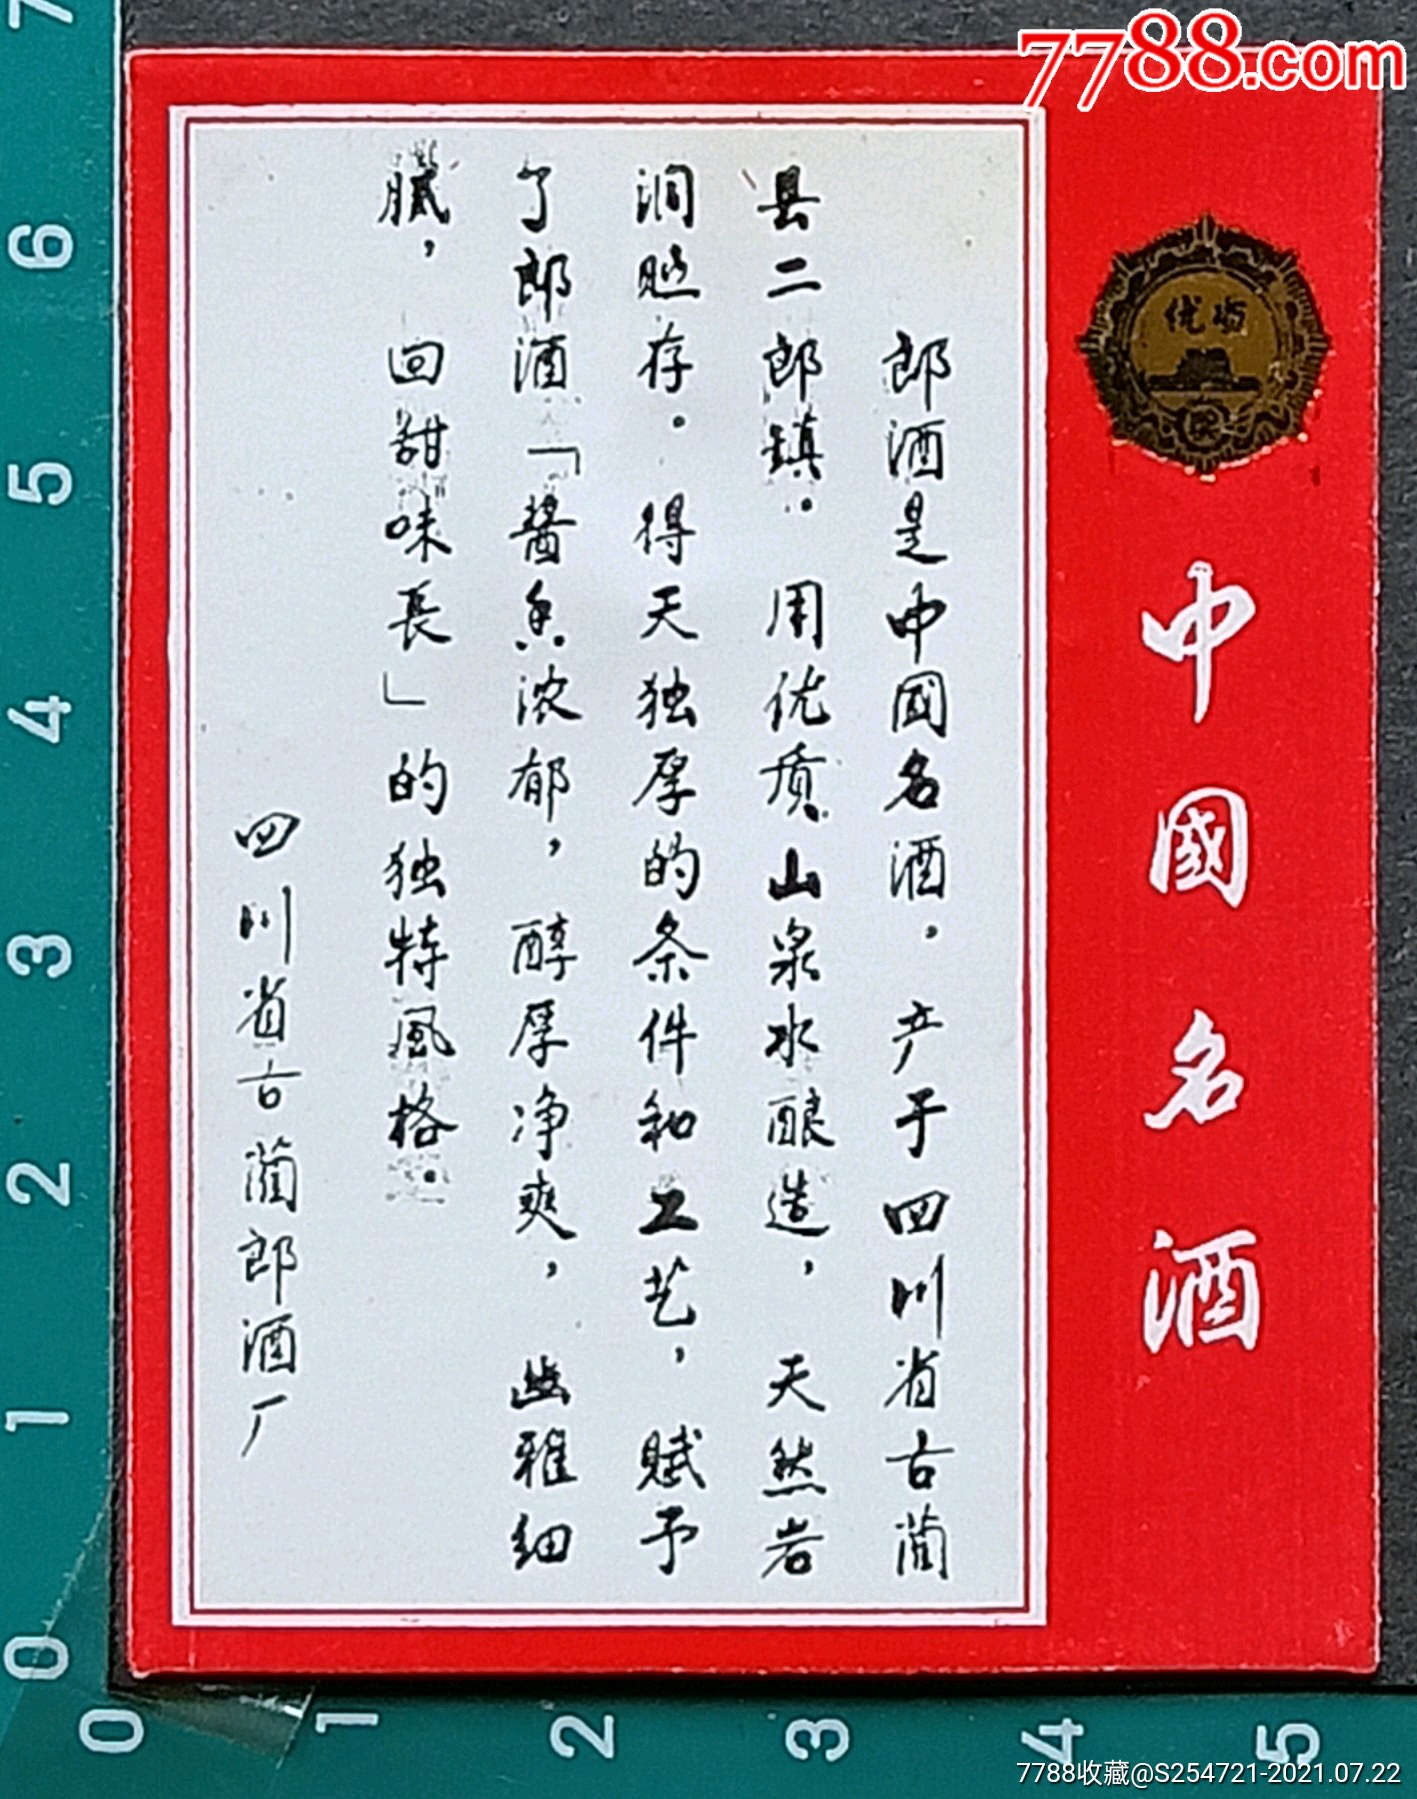 7788.com
优质
中國名酒
郎酒是中國名酒。产于四川省古蔺
县二郎鎮。用优质山泉水酿造，天然岩
洞贮存。得天独厚的条件和工艺，赋予
了郎酒「醬香浓郁，醇厚净爽，幽雅细
膩，回甜味長」的独特風格。
四川省古蔺郎酒厂
7
6
5
4
3
2
1
0
0
1
2
3
4
5
7788收藏@S254721-2021.07.22